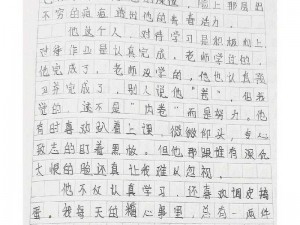 不穷的痘痘，透出他的青春活力。
他这个人，对待学习是积极向上，
对待作业是认真完成，老师学过的，
他完成了，老师没学的，他也认真预
习并完成了，别人说他“卷”，但我
觉的，这不是“内卷”而是努力。他
有时喜欢趴着上课，微微仰头，专心
致志的盯着黑板。但他那跟谁有深仇
大恨的脸还真让我难以忽视。
他不仅认真学习，还喜欢调皮捣
蛋。我每天的糟心事里，总有一两件